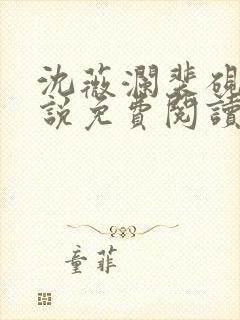 沈薇瀾裴硯
說免費閱讀
童菲